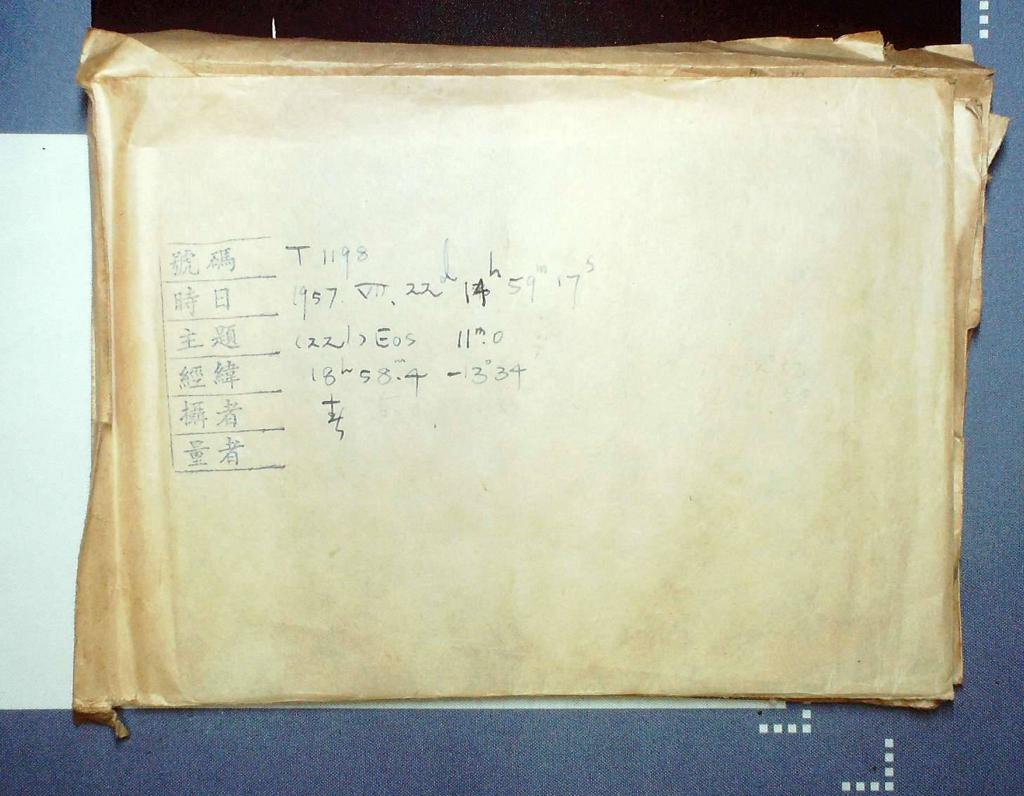 號碼 T 1198
時日 1957. VII. 22ᵈ 14ʰ 59ᵐ 17ˢ
主題 (221) Eos 11ᵐ.0
經緯 18ʰ 58ᵐ.4 -13°34
攝者
量者